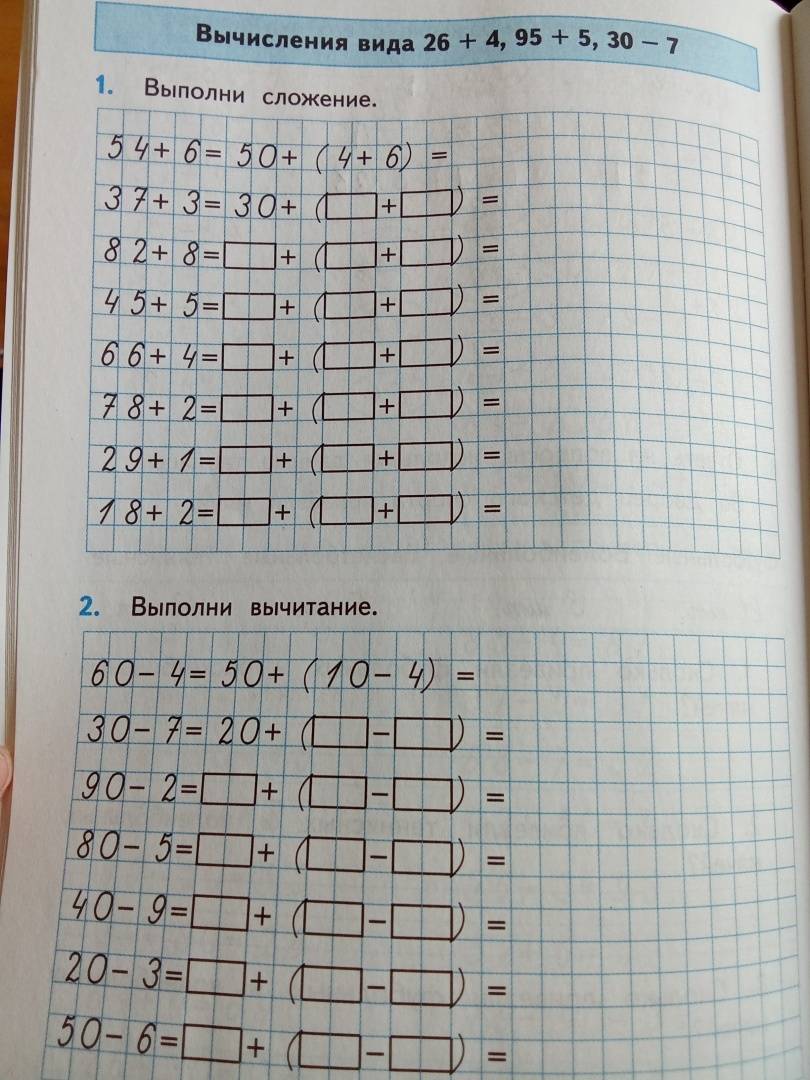 Вычисления вида 26 + 4, 95 + 5, 30 − 7
1. Выполни сложение.
54 + 6 = 50 + (4 + 6) =
37 + 3 = 30 + (□ + □) =
82 + 8 = □ + (□ + □) =
45 + 5 = □ + (□ + □) =
66 + 4 = □ + (□ + □) =
78 + 2 = □ + (□ + □) =
29 + 1 = □ + (□ + □) =
18 + 2 = □ + (□ + □) =
2. Выполни вычитание.
60 − 4 = 50 + (10 − 4) =
30 − 7 = 20 + (□ − □) =
90 − 2 = □ + (□ − □) =
80 − 5 = □ + (□ − □) =
40 − 9 = □ + (□ − □) =
20 − 3 = □ + (□ − □) =
50 − 6 = □ + (□ − □) =